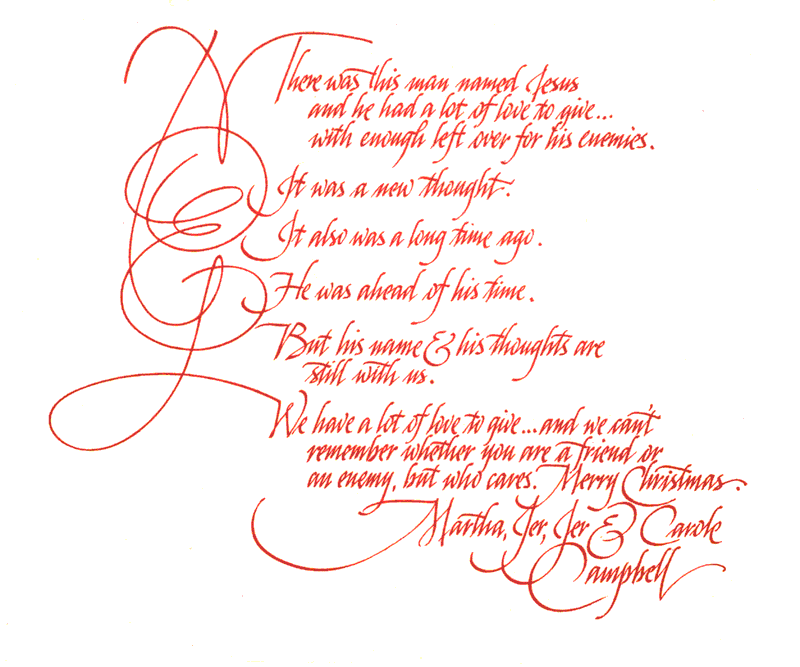 There was this man named Jesus
and he had a lot of love to give...
with enough left over for his enemies.
It was a new thought.
It also was a long time ago.
He was ahead of his time.
But his name & his thoughts are
still with us.
We have a lot of love to give...and we can't
remember whether you are a friend or
an enemy, but who cares. Merry Christmas.
Martha, Jer, Jer & Carole
Campbell